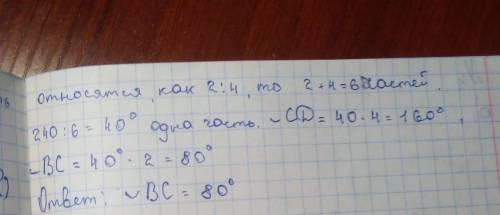 относятся, как 2:4, то 2+4=6 частей.
240:6=40° одна часть. ◡CD=40·4=160°,
◡BC=40°·2=80°
Ответ: ◡BC=80°